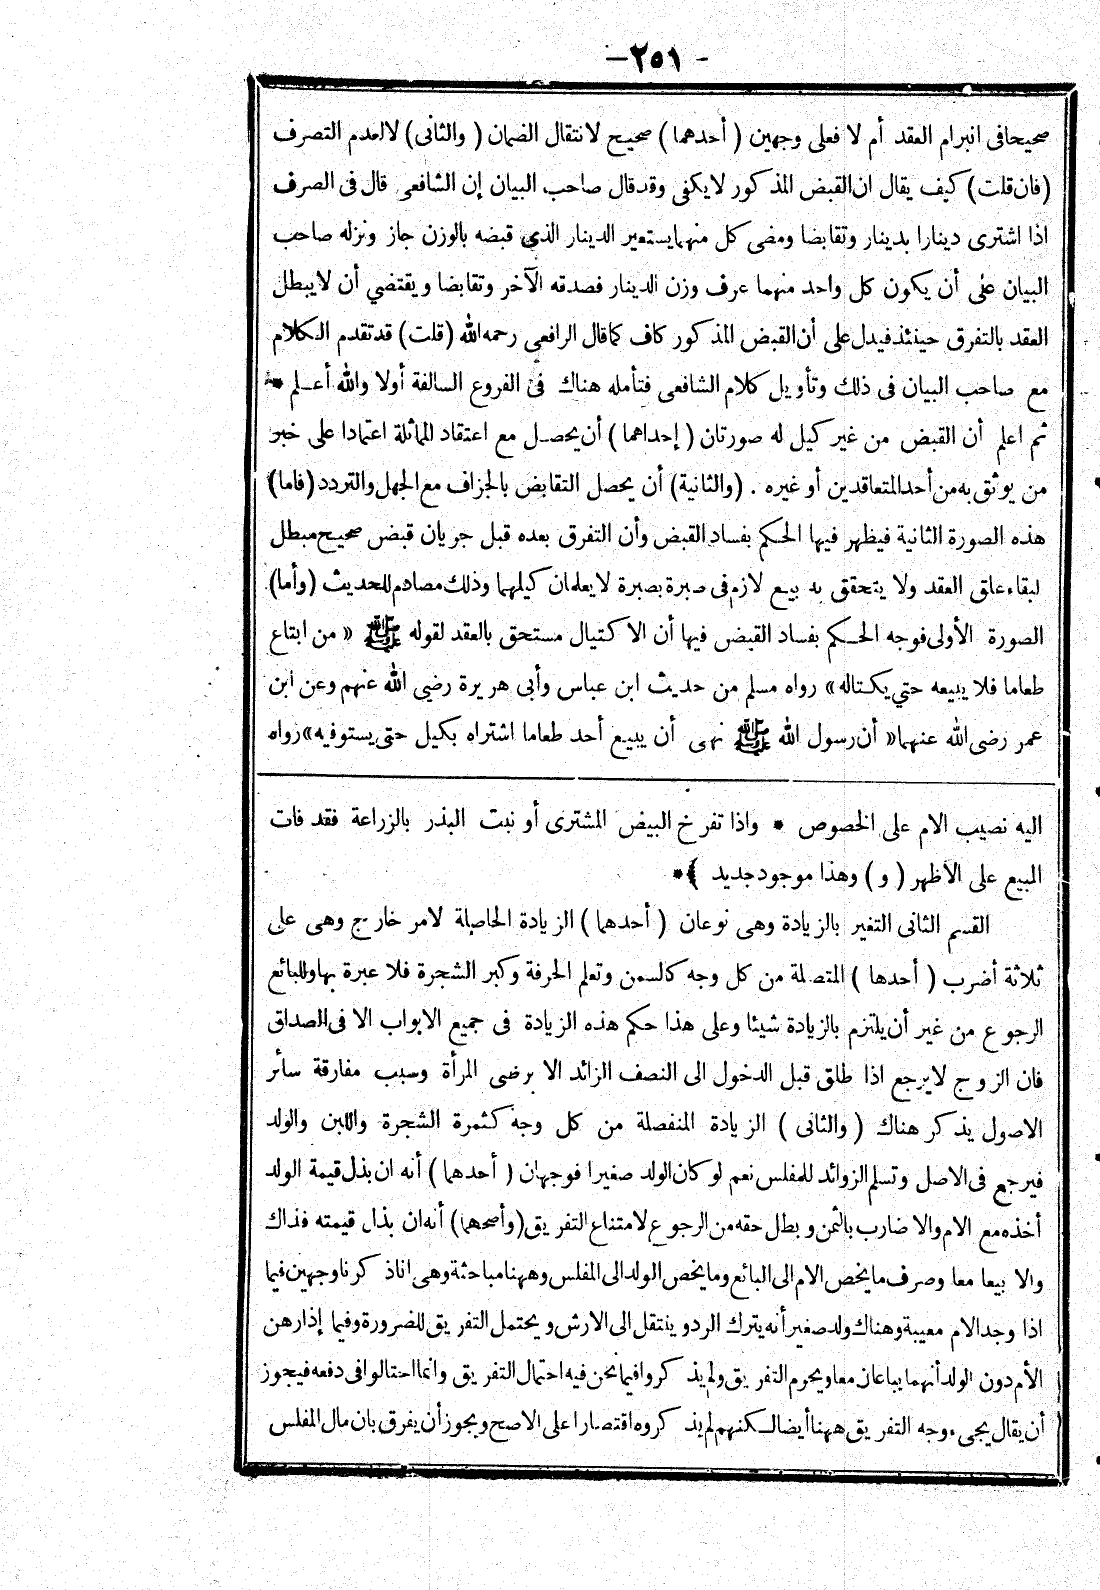 - ٢٥١ -
صحيحا فى انبرام العقد أم لا فعلى وجهين ( أحدهما ) صحيح لانتقال الضمان ( والثانى ) لا لعدم التصرف
( فان قلت ) كيف يقال ان القبض المذكور لا يكفى وقد قال صاحب البيان إن الشافعى قال فى الصرف
اذا اشترى دينارا بدينار وتقابضا ومضى كل منهما يستعير الدينار الذى قبضه بالوزن جاز ونزله صاحب
البيان على أن يكون كل واحد منهما عرف وزن الدينار فصدقه الآخر وتقابضا ويقتضي أن لا يبطل
العقد بالتفرق حينئذ فيدل على أن القبض المذكور كاف كما قال الرافعى رحمه الله ( قلت ) قد تقدم الكلام
مع صاحب البيان فى ذلك وتأويل كلام الشافعى فتأمله هناك فى الفروع السالفة أولا والله أعلم *
ثم اعلم أن القبض من غير كيل له صورتان ( إحداهما ) أن يحصل مع اعتقاد المماثلة اعتمادا على خبر
من يوثق به من أحد المتعاقدين أو غيره . ( والثانية ) أن يحصل التقابض بالجزاف مع الجهل والتردد ( فاما )
هذه الصورة الثانية فيظهر فيها الحكم بفساد القبض وأن التفرق بعده قبل جريان قبض صحيح مبطل
لبقاء علق العقد ولا يتحقق به بيع لازم فى صبرة بصبرة لا يعلمان كيلهما وذلك مصادم للحديث ( وأما )
الصورة الأولى فوجه الحكم بفساد القبض فيها أن الاكتيال مستحق بالعقد لقوله ﷺ « من ابتاع
طعاما فلا يبيعه حتي يكتاله » رواه مسلم من حديث ابن عباس وأبى هريرة رضي الله عنهم وعن ابن
عمر رضى الله عنهما « أن رسول الله ﷺ نهى أن يبيع أحد طعاما اشتراه بكيل حتى يستوفيه » رواه
اليه نصيب الام على الخصوص * واذا تفرخ البيض المشترى أو نبت البذر بالزراعة فقد فات
المبيع على الاظهر ( و ) وهذا موجود جديد ﴾ *
القسم الثانى التغير بالزيادة وهى نوعان ( أحدهما ) الزيادة الحاصلة لا لامر خارج وهى على
ثلاثة أضرب ( أحدها ) المتصلة من كل وجه كالسمن وتعلم الحرفة وكبر الشجرة فلا عبرة بها وللبائع
الرجوع من غير أن يلتزم بالزيادة شيئا وعلى هذا حكم هذه الزيادة فى جميع الابواب الا فى الصداق
فان الزوج لا يرجع اذا طلق قبل الدخول الى النصف الزائد الا برضى المرأة وسبب مفارقة سائر
الاصول يذكر هناك ( والثانى ) الزيادة المنفصلة من كل وجه كثمرة الشجرة واللبن والولد
فيرجع فى الاصل وتسلم الزوائد للمفلس نعم لو كان الولد صغيرا فوجهان ( أحدهما ) أنه ان بذل قيمة الولد
أخذه مع الام والا ضارب بالثمن وبطل حقه من الرجوع لامتناع التفريق ( وأصحهما ) أنه ان بذل قيمته فذاك
والا بيعا معا وصرف ما يخص الام الى البائع وما يخص الولد الى المفلس وههنا مباحثة وهى انا ذكرنا وجهين فيما
اذا وجد الام معيبة وهناك ولد صغير أنه يترك الرد وينتقل الى الارش ويحتمل التفريق للضرورة وفيما إذا رهن
الأم دون الولد أنهما يباعان معا ويحرم التفريق ولم يذكروا فيما نحن فيه احتمال التفريق وانما احتالوا فى دفعه فيجوز
أن يقال يجىء وجه التفريق ههنا أيضا لكنهم لم يذكروه اقتصارا على الاصح ويجوز أن يفرق بان مال المفلس